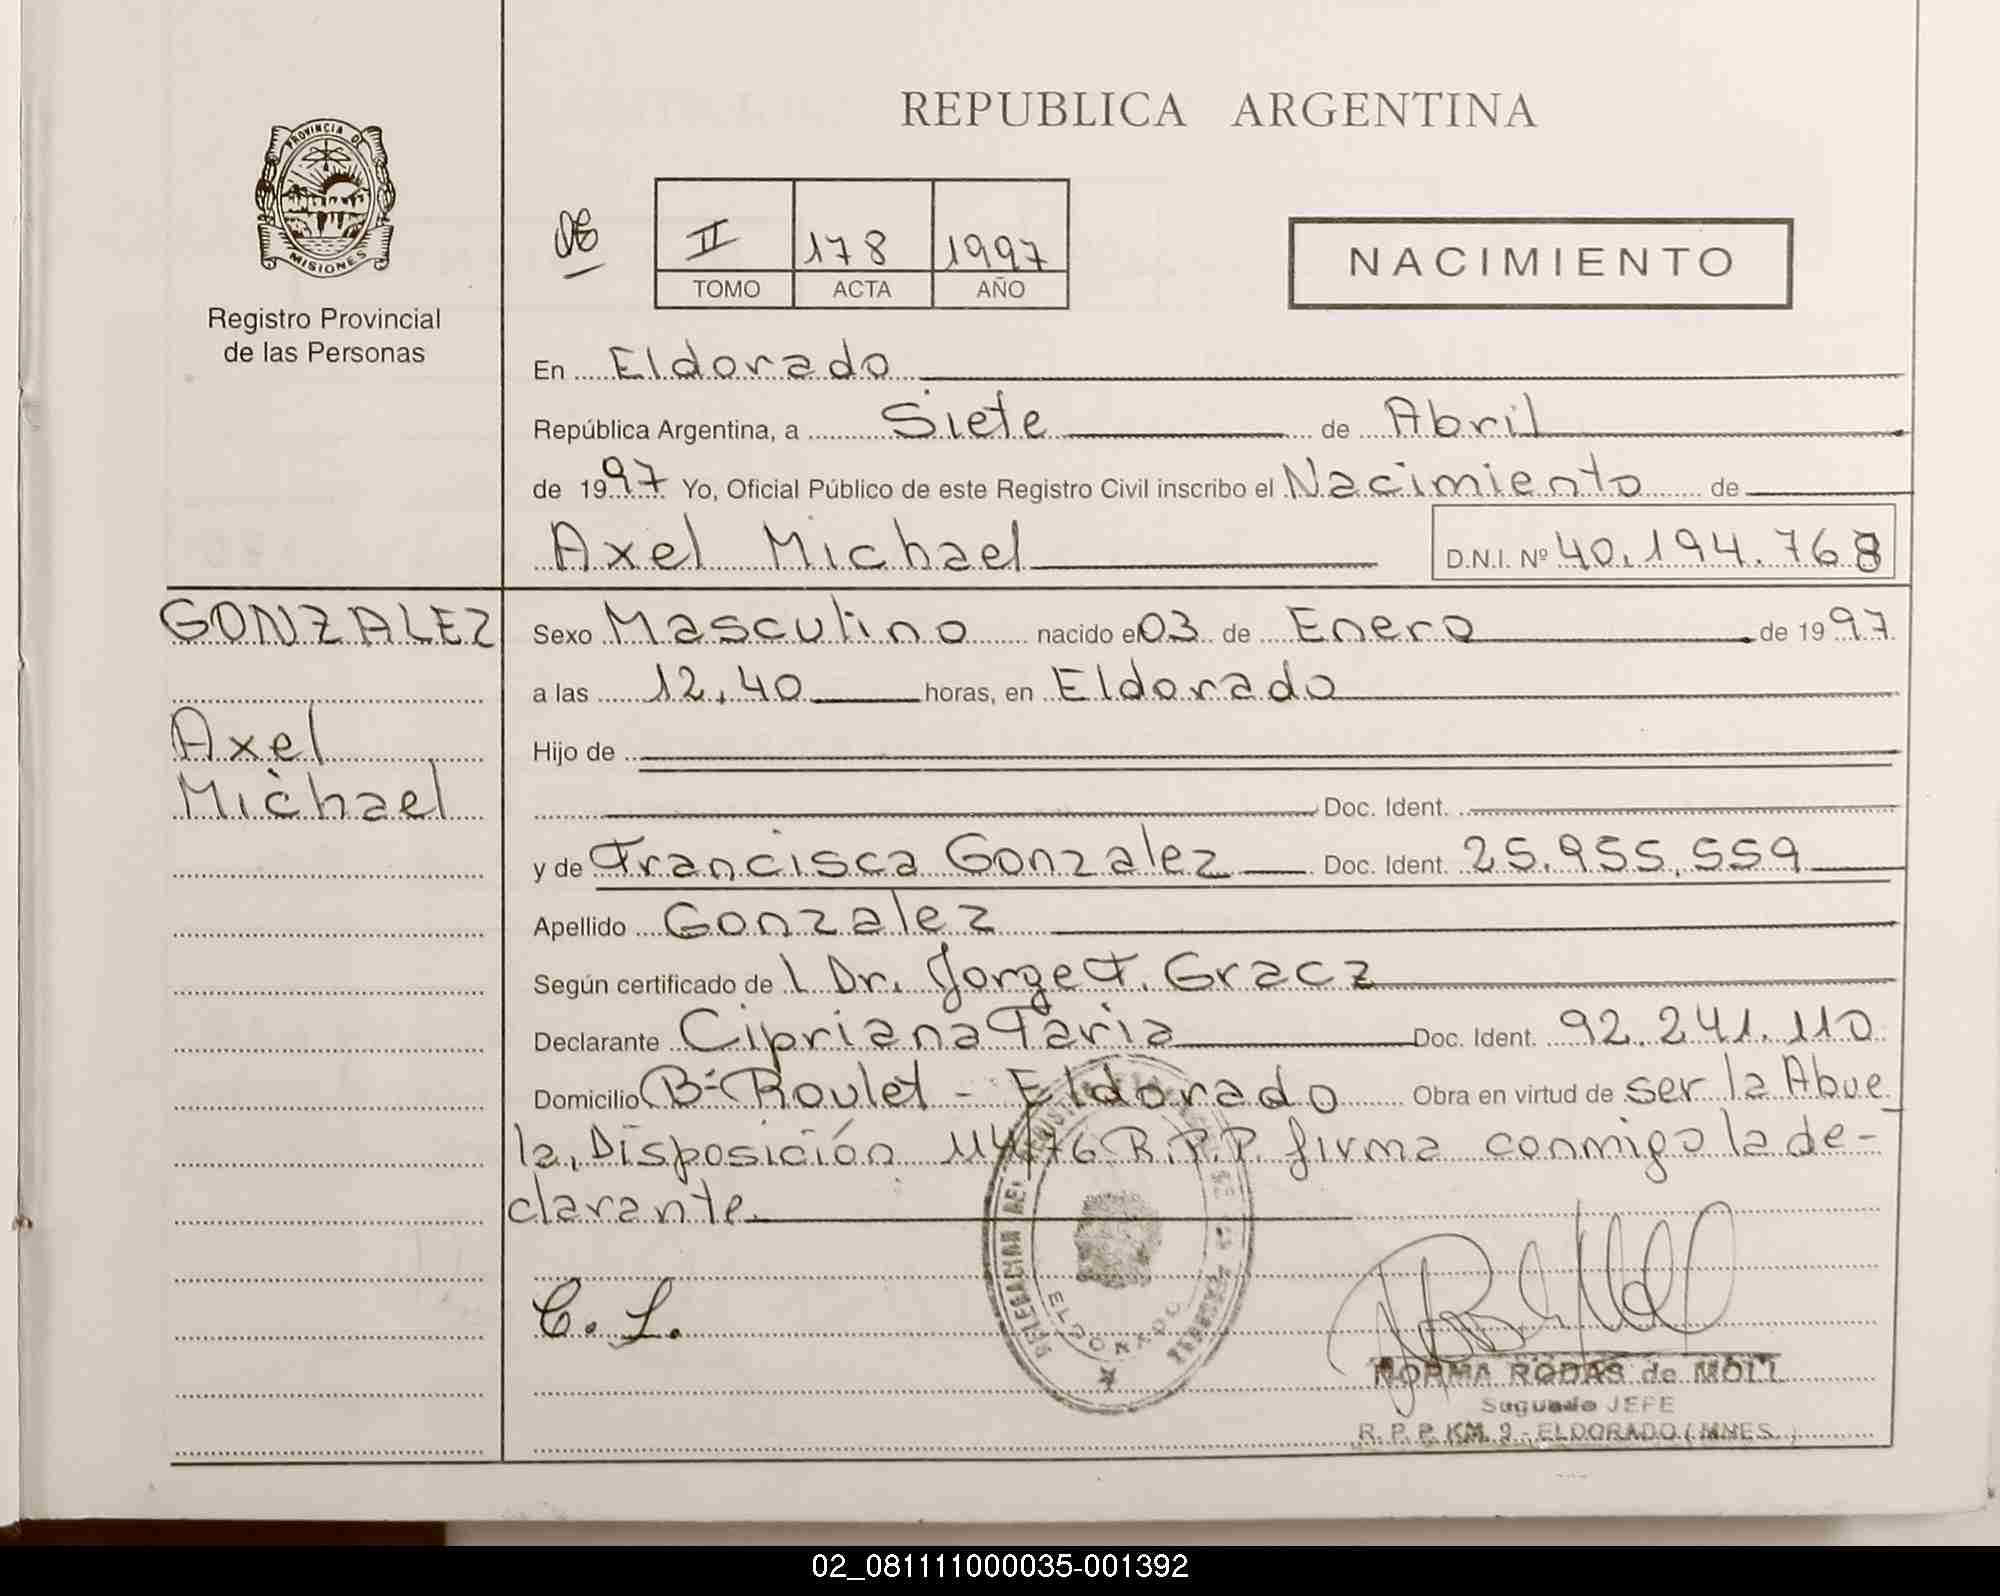 REPUBLICA ARGENTINA
PROVINCIA DE
MISIONES
Registro Provincial
de las Personas
II 178 1997
TOMO ACTA AÑO
NACIMIENTO
En Eldorado
República Argentina, a Siete de Abril
de 1997 Yo, Oficial Público de este Registro Civil inscribo el Nacimiento de
Axel Michael D.N.I. Nº 40.194.768
GONZALEZ
Axel
Michael
Sexo Masculino nacido el 03 de Enero de 1997
a las 12,40 horas, en Eldorado
Hijo de
Doc. Ident.
y de Francisca Gonzalez Doc. Ident. 25.955.559
Apellido Gonzalez
Según certificado del Dr. Jorge F. Gracz
Declarante Cipriana Faria Doc. Ident. 92.241.110
Domicilio Bº Roulet - Eldorado Obra en virtud de ser la Abue
la, Disposición 114/76 R.P.P. firma conmigo la de-
clarante.
ELDORADO
NORMA RODAS de MOLL
Segundo JEFE
R. P. P. KM. 9 - ELDORADO (MNES.)
02_081111000035-001392